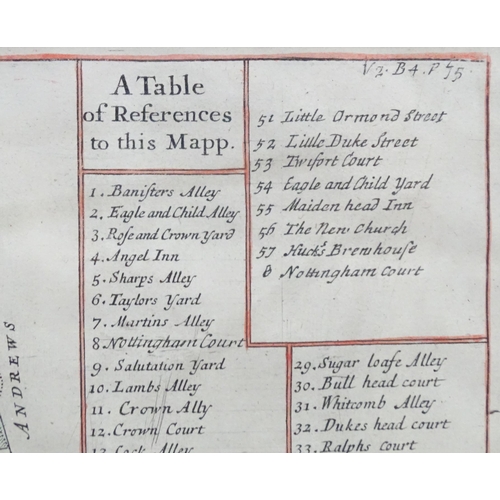 V2. B4. P 75
A Table
of References
to this Mapp.
1. Banisters Alley
2. Eagle and Child Alley
3. Rose and Crown Yard
4. Angel Inn
5. Sharps Alley
6. Taylors Yard
7. Martins Alley
8 Nottingham Court
9. Salutation Yard
10. Lambs Alley
11. Crown Ally
12. Crown Court
13. Cock Alley
51 Little Ormond Street
52 Little Duke Street
53 Twifort Court
54 Eagle and Child Yard
55 Maiden head Inn
56 The New Church
57 Huck's Brewhouse
8 Nottingham Court
29. Sugar loafe Alley
30. Bull head court
31. Whitcomb Alley
32. Dukes head court
33. Ralphs court
ANDREWS